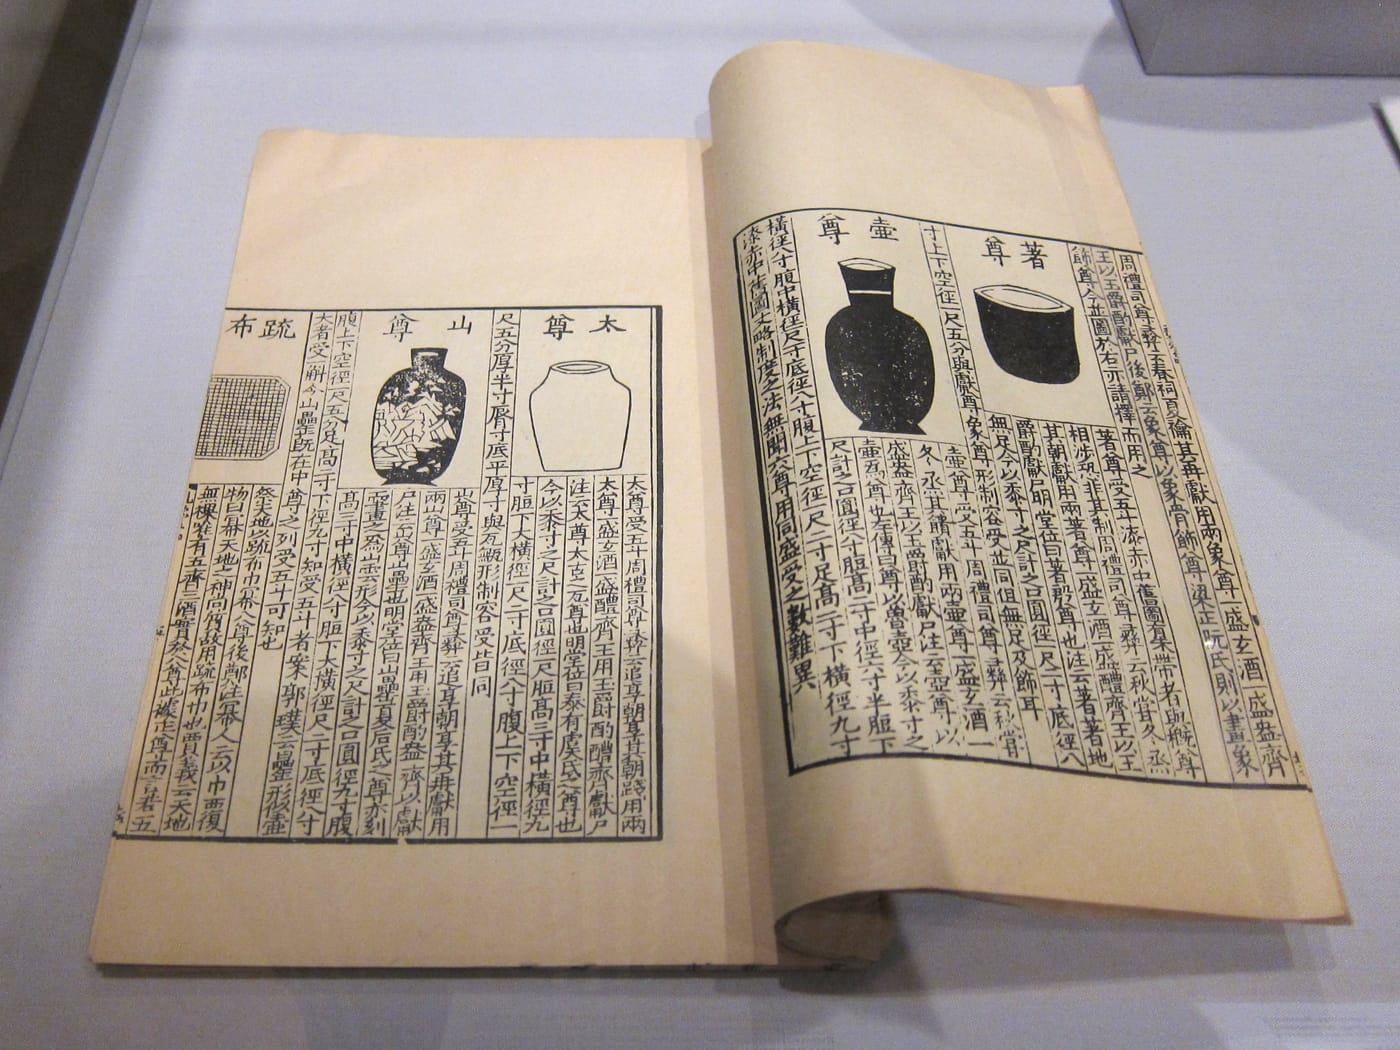 周禮司尊彝云春祠夏禴其再獻用兩象尊一盛玄酒一盛盎齊
王以玉爵酌獻尸後鄭云象尊以象骨飾尊梁正阮氏則以畫象
飾尊今並圖於右亦請擇而用之
著尊
著尊受五斗漆赤中舊圖有朱帶者與概尊
相涉恐非其制周禮司尊彝云秋嘗冬烝
其朝獻用兩著尊一盛玄酒一盛醴齊王以玉
爵酌獻尸明堂位曰著殷尊也注云著著地
無足今以黍寸之尺計之口圓徑一尺二寸底徑八
寸上下空徑一尺五分與獻尊象尊形制容受並同但無足及飾耳
壺尊
壺尊受五斗周禮司尊彝云秋嘗
冬烝其饋獻用兩壺尊一盛玄酒一
盛盎齊王以玉爵酌獻尸注云壺尊以
壺為尊也左傳曰尊以魯壺今以黍寸之
尺計之口圓徑八寸脰高二寸中徑六寸半脰下
橫徑八寸腹中橫徑一尺一寸底徑八寸腹上下空徑一尺二寸足高二寸下橫徑九寸
漆赤中舊圖文略制度之法無聞六尊用同盛受之數難異
太尊
太尊受五斗周禮司尊彝云追享朝享其朝踐用兩
太尊一盛玄酒一盛醴齊王用玉爵酌醴齊獻尸
注云太尊太古之瓦尊也明堂位曰泰有虞氏之尊也
今以黍寸之尺計之口圓徑一尺脰高三寸中橫徑九
寸脰下大橫徑一尺二寸底徑八寸腹上下空徑一
尺五分厚半寸脣寸底平厚寸與瓦甒形制容受皆同
山尊
山尊受五斗周禮司尊彝云追享朝享其再獻用
兩山尊一盛玄酒一盛盎齊王用玉爵酌盎齊以獻
尸注云山尊山罍也明堂位曰山罍夏后氏之尊亦刻
而畫之為山雲形今以黍寸之尺計之口圓徑九寸腹
高三寸中橫徑八寸脰下大橫徑尺二寸底徑八寸
腹上下空徑一尺五分足高二寸下徑九寸知受五斗者案郭璞云罍形似壺
大者受一斛今山罍既在中尊之列受五斗可知也
疏布
祭天地以疏布巾冪八尊後鄭注冪人云以巾覆
物曰冪天地之神尚質故用疏布巾也賈義云天地
無祼唯有五齊三酒實於八尊此據正尊而言若五